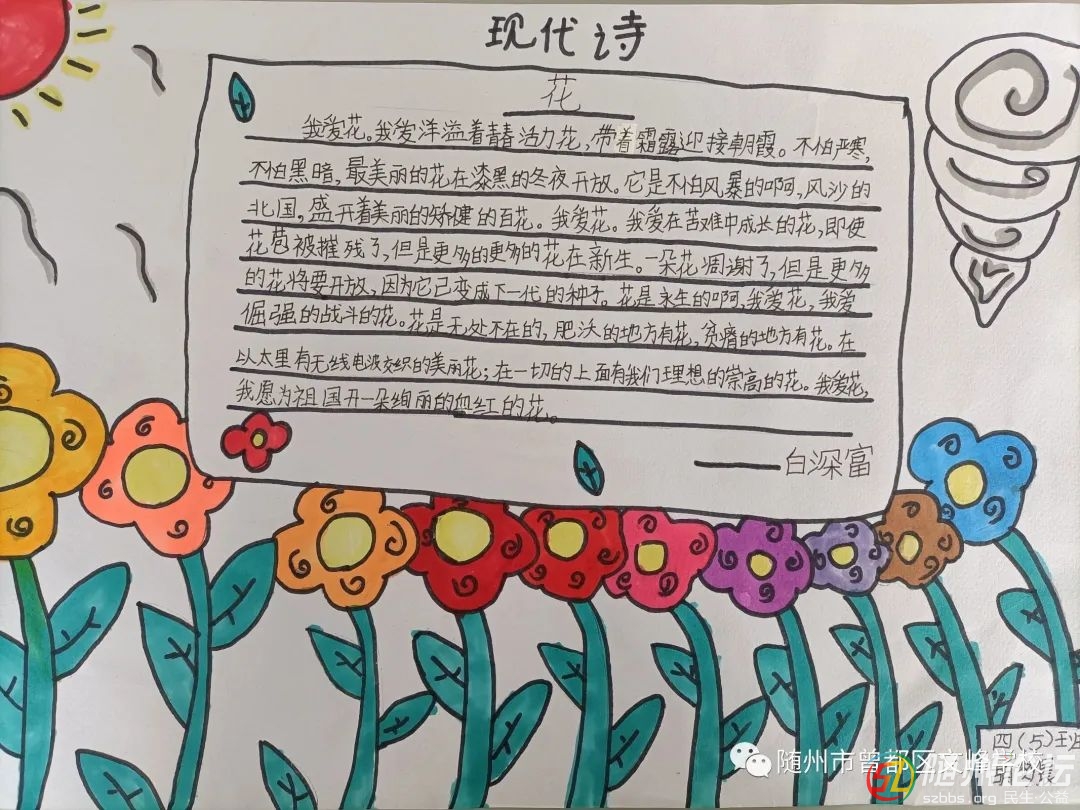 现代诗
花
我爱花。我爱洋溢着青春活力花，带着霜露迎接朝霞。不怕严寒，
不怕黑暗，最美丽的花在漆黑的冬夜开放。它是不怕风暴的啊，风沙的
北国，盛开着美丽的矫健的百花。我爱花。我爱在苦难中成长的花，即使
花苞被摧残了，但是更多的更多的花在新生。一朵花凋谢了，但是更多
的花将要开放，因为它已变成下一代的种子。花是永生的啊，我爱花，我爱
倔强的战斗的花。花是无处不在的，肥沃的地方有花，贫瘠的地方有花。在
以太里有无线电波交织的美丽花；在一切的上面有我们理想的崇高的花。我爱花，
我愿为祖国开一朵绚丽的血红的花。
——白深富
四(5)班
随州市曾都区文峰学校
随州论坛
szbbs.org 民生·公益